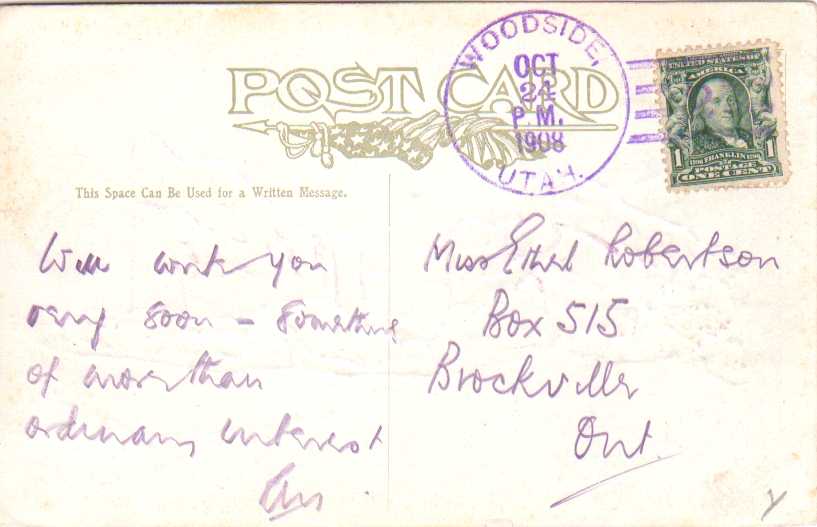 POST CARD
WOODSIDE,
OCT
24
P.M.
1908
UTAH.
UNITED STATES OF
AMERICA
1 FRANKLIN 1
POSTAGE
ONE CENT
This Space Can Be Used for a Written Message.
Will write you
very soon – something
of more than
ordinary interest
Miss Ethel Robertson
Box 515
Brockville
Ont.